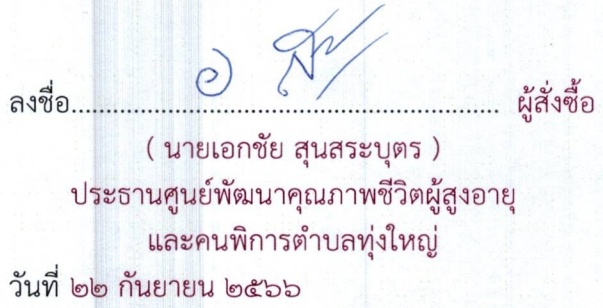 ลงชื่อ.................................................................. ผู้สั่งซื้อ
( นายเอกชัย สุนสระบุตร )
ประธานศูนย์พัฒนาคุณภาพชีวิตผู้สูงอายุ
และคนพิการตำบลทุ่งใหญ่
วันที่ ๒๒ กันยายน ๒๕๖๖